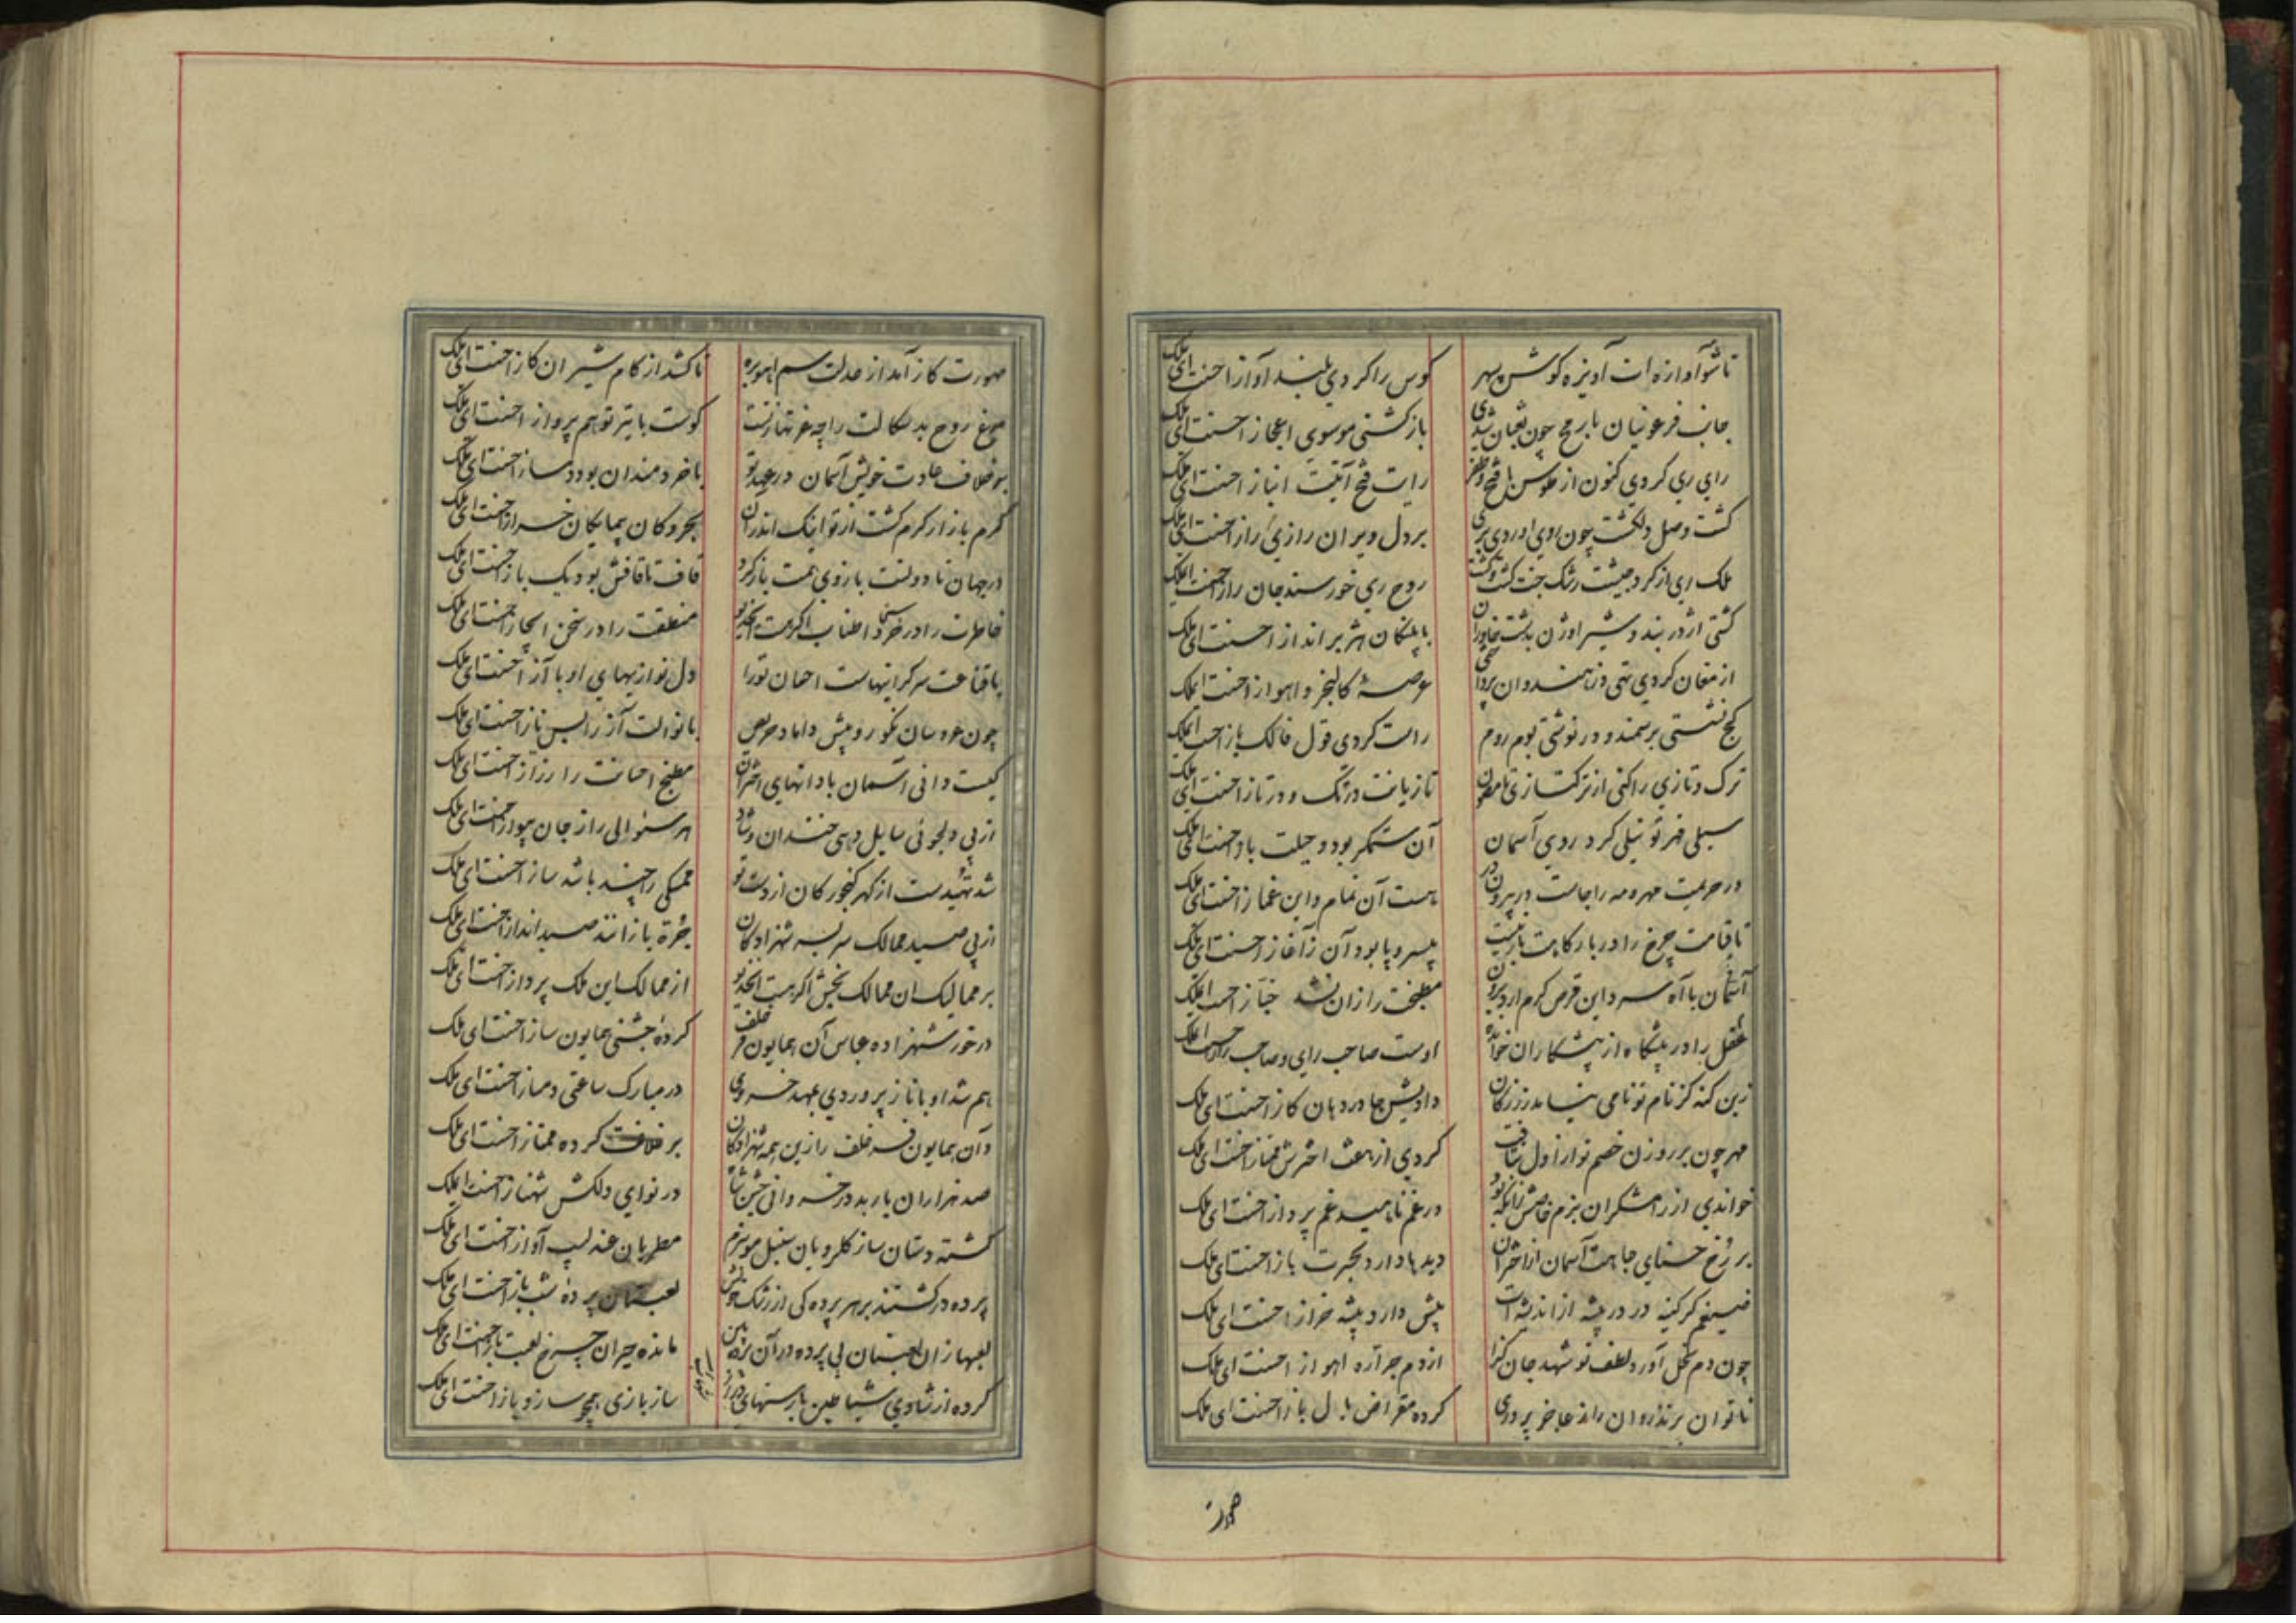 تا شو آوازه ات آویزه کوش سپهر کوس را کردی بلند آواز احسنت ای ملک
جانب فرعونیان با رمح چون ثعبان شدی بازکشتی موسوی اعجاز احسنت ای ملک
رای ری کردی کنون از طوس با فتح و ظفر رایت فتح آیتت انباز احسنت ای ملک
کشت وصل دلکشت چون روی بردل ویران رازی راز احسنت ای ملک
ملک ری از کرد جیشت رشک جنت کشت و کشت روح ری خورسند جان راز احسنت ای ملک
کشتی اژدر بند و شیر اوژن بدشت خاوران با پلنکان هژبر انداز احسنت ای ملک
از مغان کردی تهی وز هندوان عرصهٔ کالنجر و اهواز احسنت ای ملک
کج نشستی برسمند و درنوشتی بوم روم راست کردی قول فالک باز احسنت ای ملک
ترک و تازی را کنی از ترکتازی تازیانت در تک و در تاز احسنت ای ملک
سیلی قهر تو نیلی کرد روی آسمان آن ستمکر بود و حیلت باز احسنت ای ملک
در حریمت مهر و مه را جاست در بیرون در هست آن نمام و این غماز احسنت ای ملک
تا قیامت چرخ را در بارکاهت بار نیست بیسر و پا بود آن ز آغاز احسنت ای ملک
آسمان با آه سرد این قرص کرم آرد برون مطبخت را زان نشد خباز احسنت ای ملک
عقل را در پیشگاه از پیشکاران خوانده اوست صاحب رای و صاحب راز احسنت ای ملک
زین کنه کز نام تو نامی دادیش جا در دهان کاز احسنت ای ملک
مهر چون بر روزن خصم تو از اول بتافت کردی از هفت اخترش ممتاز احسنت ای ملک
خواندی از رامشکران بزم خاصش زانکه بود در غم ناهید غم پرداز احسنت ای ملک
بر رخ حسنای جاهت آسمان از اختران دیدها دارد بحیرت باز احسنت ای ملک
ضیغم کر کینه در در بیشه از اندیشه ات پیش دارد پیشه خراز احسنت ای ملک
چون دم نحل آورد لطف تو شهد جان کزا از دم جراره اهواز احسنت ای ملک
ناتوان بر تذروان را ز عاجز پروری کرده مقراض بال باز احسنت ای ملک
صورت کاز آمد از عدلت سم آهوبره تا کشد از کام شیران کاز احسنت ای ملک
مرغ روح بدسکالت را چه غم تنها زتست کوست با تیر تو هم پرواز احسنت ای ملک
بر خلاف عادت خویش آسمان در عهد تو با خردمندان بود دمساز احسنت ای ملک
کرم بازار کرم کشت از تو اینک اندران بحر و کان پیمایکان خراز احسنت ای ملک
در جهان تا دولتت بازوی همت باز کرد قاف تا قافش بود یک باز احسنت ای ملک
خاطرت را در سخا اطناب اکر هست ای خدیو منطقت را در سخن ایجاز احسنت ای ملک
با قناعت سرکرانیهاست احسان تو را دل نوازیهای او با آز احسنت ای ملک
چون عروسان نکورو پیش داماد حریص با نوالت آز را بس ناز احسنت ای ملک
کیست دانی آسمان با دانهای اختران مطبخ احسانت را رزاز احسنت ای ملک
از پی دلجوئی سایل دهی خندان و شاد هر سئوالی را ز جان جواز احسنت ای ملک
شد تهیدست از کهر کنجور کان از دست تو ممسکی را چند باشد ساز احسنت ای ملک
از پی صید ممالک سربسر شهزادکان جره بازانند صید انداز احسنت ای ملک
بر ممالیک ان ممالک بخش اکر هست ای خدیو از ممالک این ملک پرداز احسنت ای ملک
در خور شهزاده عباس آن همایون فر خلف کردهٔ جشنی همایون ساز احسنت ای ملک
هم شد او با ناز پروردی بمهد خسروی در مبارک ساعتی دمساز احسنت ای ملک
وآن همایون فر خلف را زین همه شهزادکان بر خلافت کرده ممتاز احسنت ای ملک
صد هزاران باربد در خسروانی جشن شاه در نوای دلکش شهناز احسنت ای ملک
کشته دستان ساز کلرویان سنبل مو ببزم مطربان عندلیب آواز احسنت ای ملک
پرده درکشتند بر هر پرده کی از رشک لعبتان پرده شب باز احسنت ای ملک
لعبها زان لعبتان بی پرده در آن پرده بین مانده حیران چرخ لعبت باز احسنت ای ملک
کرده از شادی شیاطین با رسنهای دراز ساز بازی همچو سازو باز احسنت ای ملک
صورت